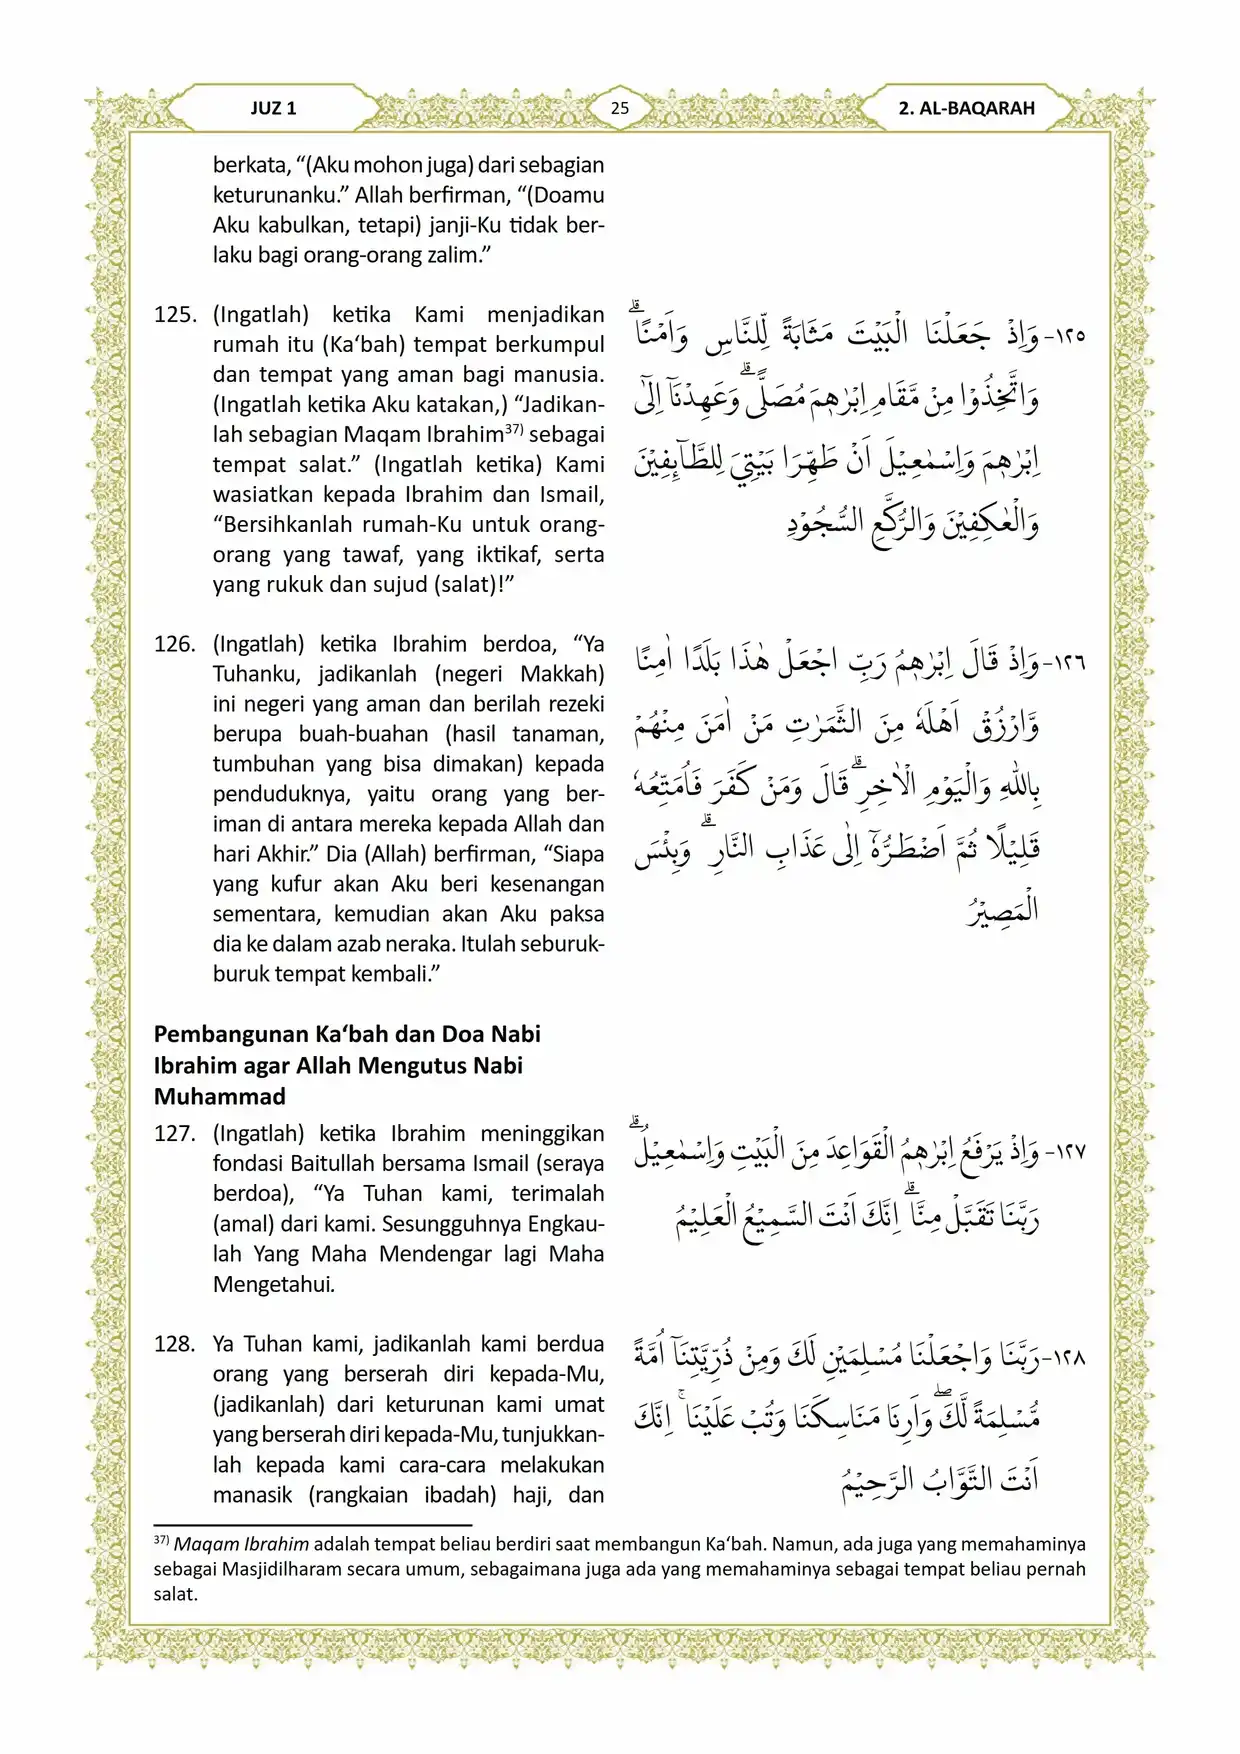 JUZ 1
25
2. AL-BAQARAH
berkata, “(Aku mohon juga) dari sebagian
keturunanku.” Allah berfirman, “(Doamu
Aku kabulkan, tetapi) janji-Ku tidak ber-
laku bagi orang-orang zalim.”
125. (Ingatlah) ketika Kami menjadikan
rumah itu (Ka‘bah) tempat berkumpul
dan tempat yang aman bagi manusia.
(Ingatlah ketika Aku katakan,) “Jadikan-
lah sebagian Maqam Ibrahim³⁷⁾ sebagai
tempat salat.” (Ingatlah ketika) Kami
wasiatkan kepada Ibrahim dan Ismail,
“Bersihkanlah rumah-Ku untuk orang-
orang yang tawaf, yang iktikaf, serta
yang rukuk dan sujud (salat)!”
١٢٥- وَاِذْ جَعَلْنَا الْبَيْتَ مَثَابَةً لِّلنَّاسِ وَاَمْنًاۗ
وَاتَّخِذُوْا مِنْ مَّقَامِ اِبْرٰهٖمَ مُصَلًّىۗ وَعَهِدْنَآ اِلٰٓى
اِبْرٰهٖمَ وَاِسْمٰعِيْلَ اَنْ طَهِّرَا بَيْتِيَ لِلطَّاۤىِٕفِيْنَ
وَالْعٰكِفِيْنَ وَالرُّكَّعِ السُّجُوْدِ
126. (Ingatlah) ketika Ibrahim berdoa, “Ya
Tuhanku, jadikanlah (negeri Makkah)
ini negeri yang aman dan berilah rezeki
berupa buah-buahan (hasil tanaman,
tumbuhan yang bisa dimakan) kepada
penduduknya, yaitu orang yang ber-
iman di antara mereka kepada Allah dan
hari Akhir.” Dia (Allah) berfirman, “Siapa
yang kufur akan Aku beri kesenangan
sementara, kemudian akan Aku paksa
dia ke dalam azab neraka. Itulah seburuk-
buruk tempat kembali.”
١٢٦- وَاِذْ قَالَ اِبْرٰهٖمُ رَبِّ اجْعَلْ هٰذَا بَلَدًا اٰمِنًا
وَّارْزُقْ اَهْلَهٗ مِنَ الثَّمَرٰتِ مَنْ اٰمَنَ مِنْهُمْ
بِاللّٰهِ وَالْيَوْمِ الْاٰخِرِۗ قَالَ وَمَنْ كَفَرَ فَاُمَتِّعُهٗ
قَلِيْلًا ثُمَّ اَضْطَرُّهٗٓ اِلٰى عَذَابِ النَّارِۗ وَبِئْسَ
الْمَصِيْرُ
Pembangunan Ka‘bah dan Doa Nabi
Ibrahim agar Allah Mengutus Nabi
Muhammad
127. (Ingatlah) ketika Ibrahim meninggikan
fondasi Baitullah bersama Ismail (seraya
berdoa), “Ya Tuhan kami, terimalah
(amal) dari kami. Sesungguhnya Engkau-
lah Yang Maha Mendengar lagi Maha
Mengetahui.
١٢٧- وَاِذْ يَرْفَعُ اِبْرٰهٖمُ الْقَوَاعِدَ مِنَ الْبَيْتِ وَاِسْمٰعِيْلُۗ
رَبَّنَا تَقَبَّلْ مِنَّاۗ اِنَّكَ اَنْتَ السَّمِيْعُ الْعَلِيْمُ
128. Ya Tuhan kami, jadikanlah kami berdua
orang yang berserah diri kepada-Mu,
(jadikanlah) dari keturunan kami umat
yang berserah diri kepada-Mu, tunjukkan-
lah kepada kami cara-cara melakukan
manasik (rangkaian ibadah) haji, dan
١٢٨- رَبَّنَا وَاجْعَلْنَا مُسْلِمَيْنِ لَكَ وَمِنْ ذُرِّيَّتِنَآ اُمَّةً
مُّسْلِمَةً لَّكَۖ وَاَرِنَا مَنَاسِكَنَا وَتُبْ عَلَيْنَاۚ اِنَّكَ
اَنْتَ التَّوَّابُ الرَّحِيْمُ
³⁷⁾ Maqam Ibrahim adalah tempat beliau berdiri saat membangun Ka‘bah. Namun, ada juga yang memahaminya
sebagai Masjidilharam secara umum, sebagaimana juga ada yang memahaminya sebagai tempat beliau pernah
salat.